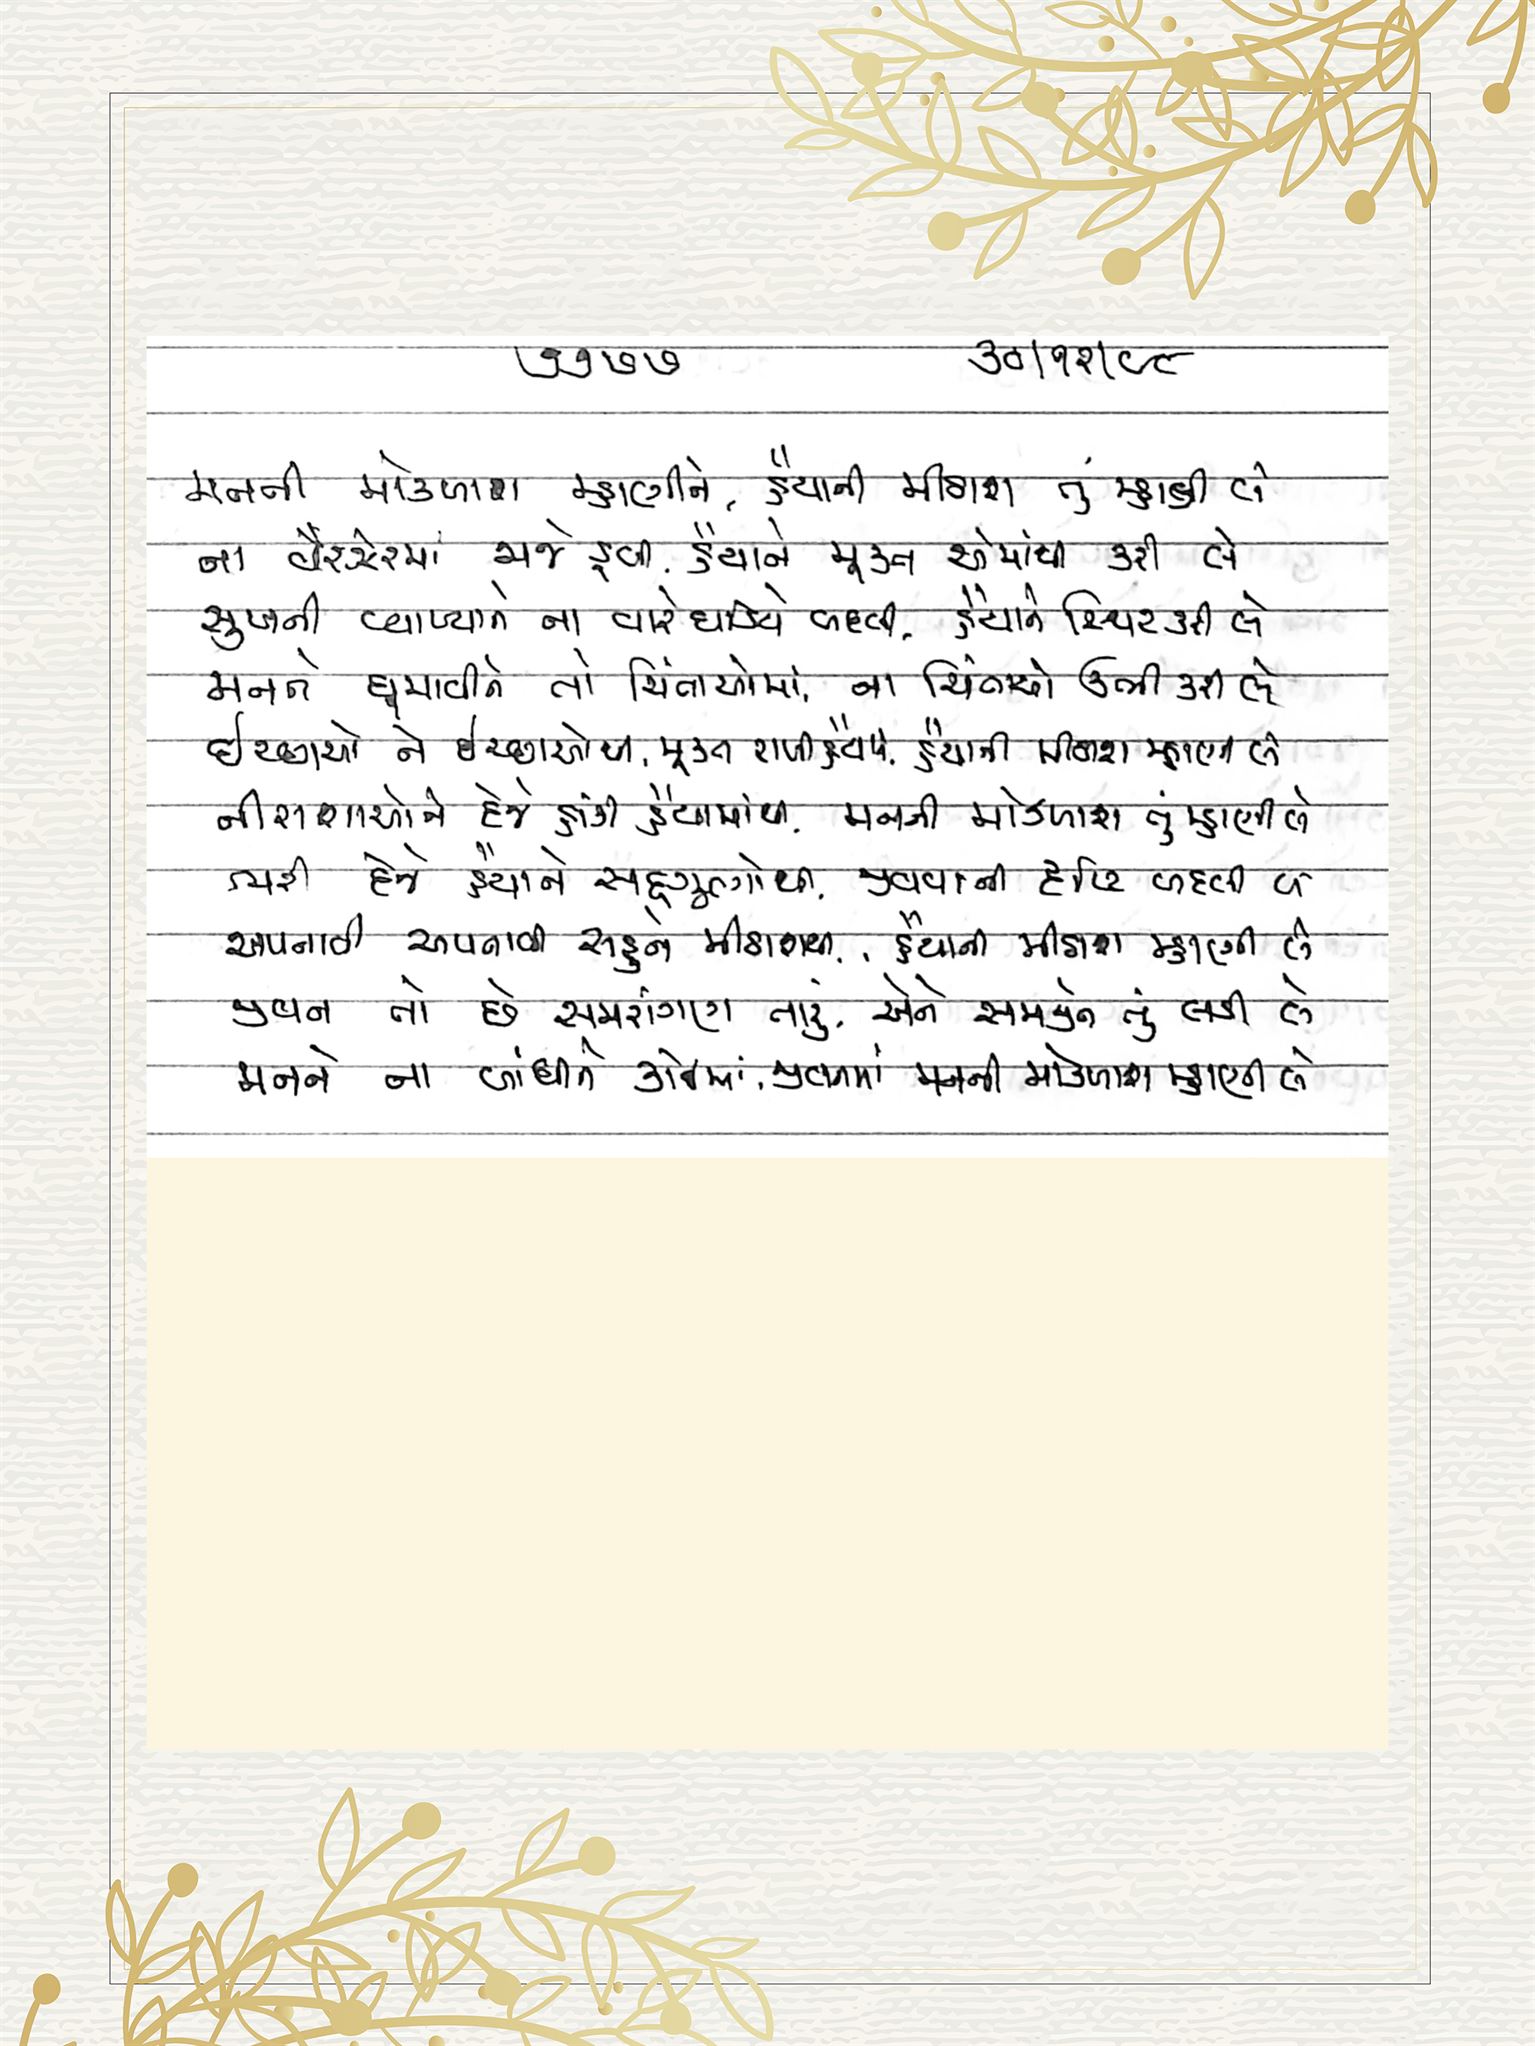 ૭૭૭૭ ૩૦/૧૨/૯૮
મનની મોકળાશ મ્હાણીને, હૈયાની મીઠાશ તું મ્હાણી લે
ના વૈરઝેરમાં આજે ડૂબી, હૈયાને મૂક્ત એમાંથી કરી લે
સુખની વ્યાખ્યાને ના વારેઘડિયે બદલી, હૈયાને સ્થિર કરી લે
મનને ઘૂમાવીને તો ચિંતાઓમાં, ના ચિંતાઓ ઊભી કરી લે
ઈચ્છાઓ ને ઈચ્છાઓથી, મૂક્ત રાખી હૈયું, હૈયાની મીઠાશ મ્હાણી લે
નીરાશાઓને દેજે ફેંકી હૈયામાંથી, મનની મોકળાશ તું મ્હાણી લે
ભરી દેજે હૈયાને સદ્દગુણોથી, જીવવાની દૃષ્ટિ બદલી લે
અપનાવી અપનાવી સહુને મીઠાશથી, હૈયાની મીઠાશ મ્હાણી લે
જીવન તો છે સમરાંગણ તારું, એને સમજીને તું લડી લે
મનને ના બાંધીને કોઈમાં, જીવનમાં મનની મોકળાશ મ્હાણી લે